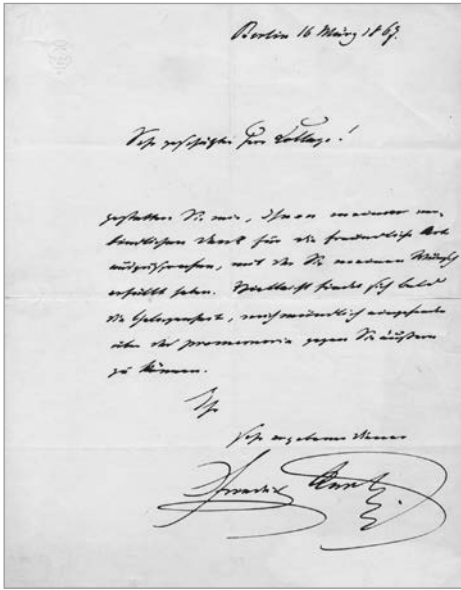 Berlin 16 März 1867.
Sehr geschätzter Herr College!
gestatten Sie mir, Ihnen meinen ver-
bindlichen Dank für die freundliche Art
auszusprechen, mit der Sie meinen Wunsch
erfüllt haben. Vielleicht findet sich bald
die Gelegenheit, mich mündlich eingehender
über das promemoria gegen Sie äußern
zu können.
Ihr
sehr ergebener Diener
Friedrich